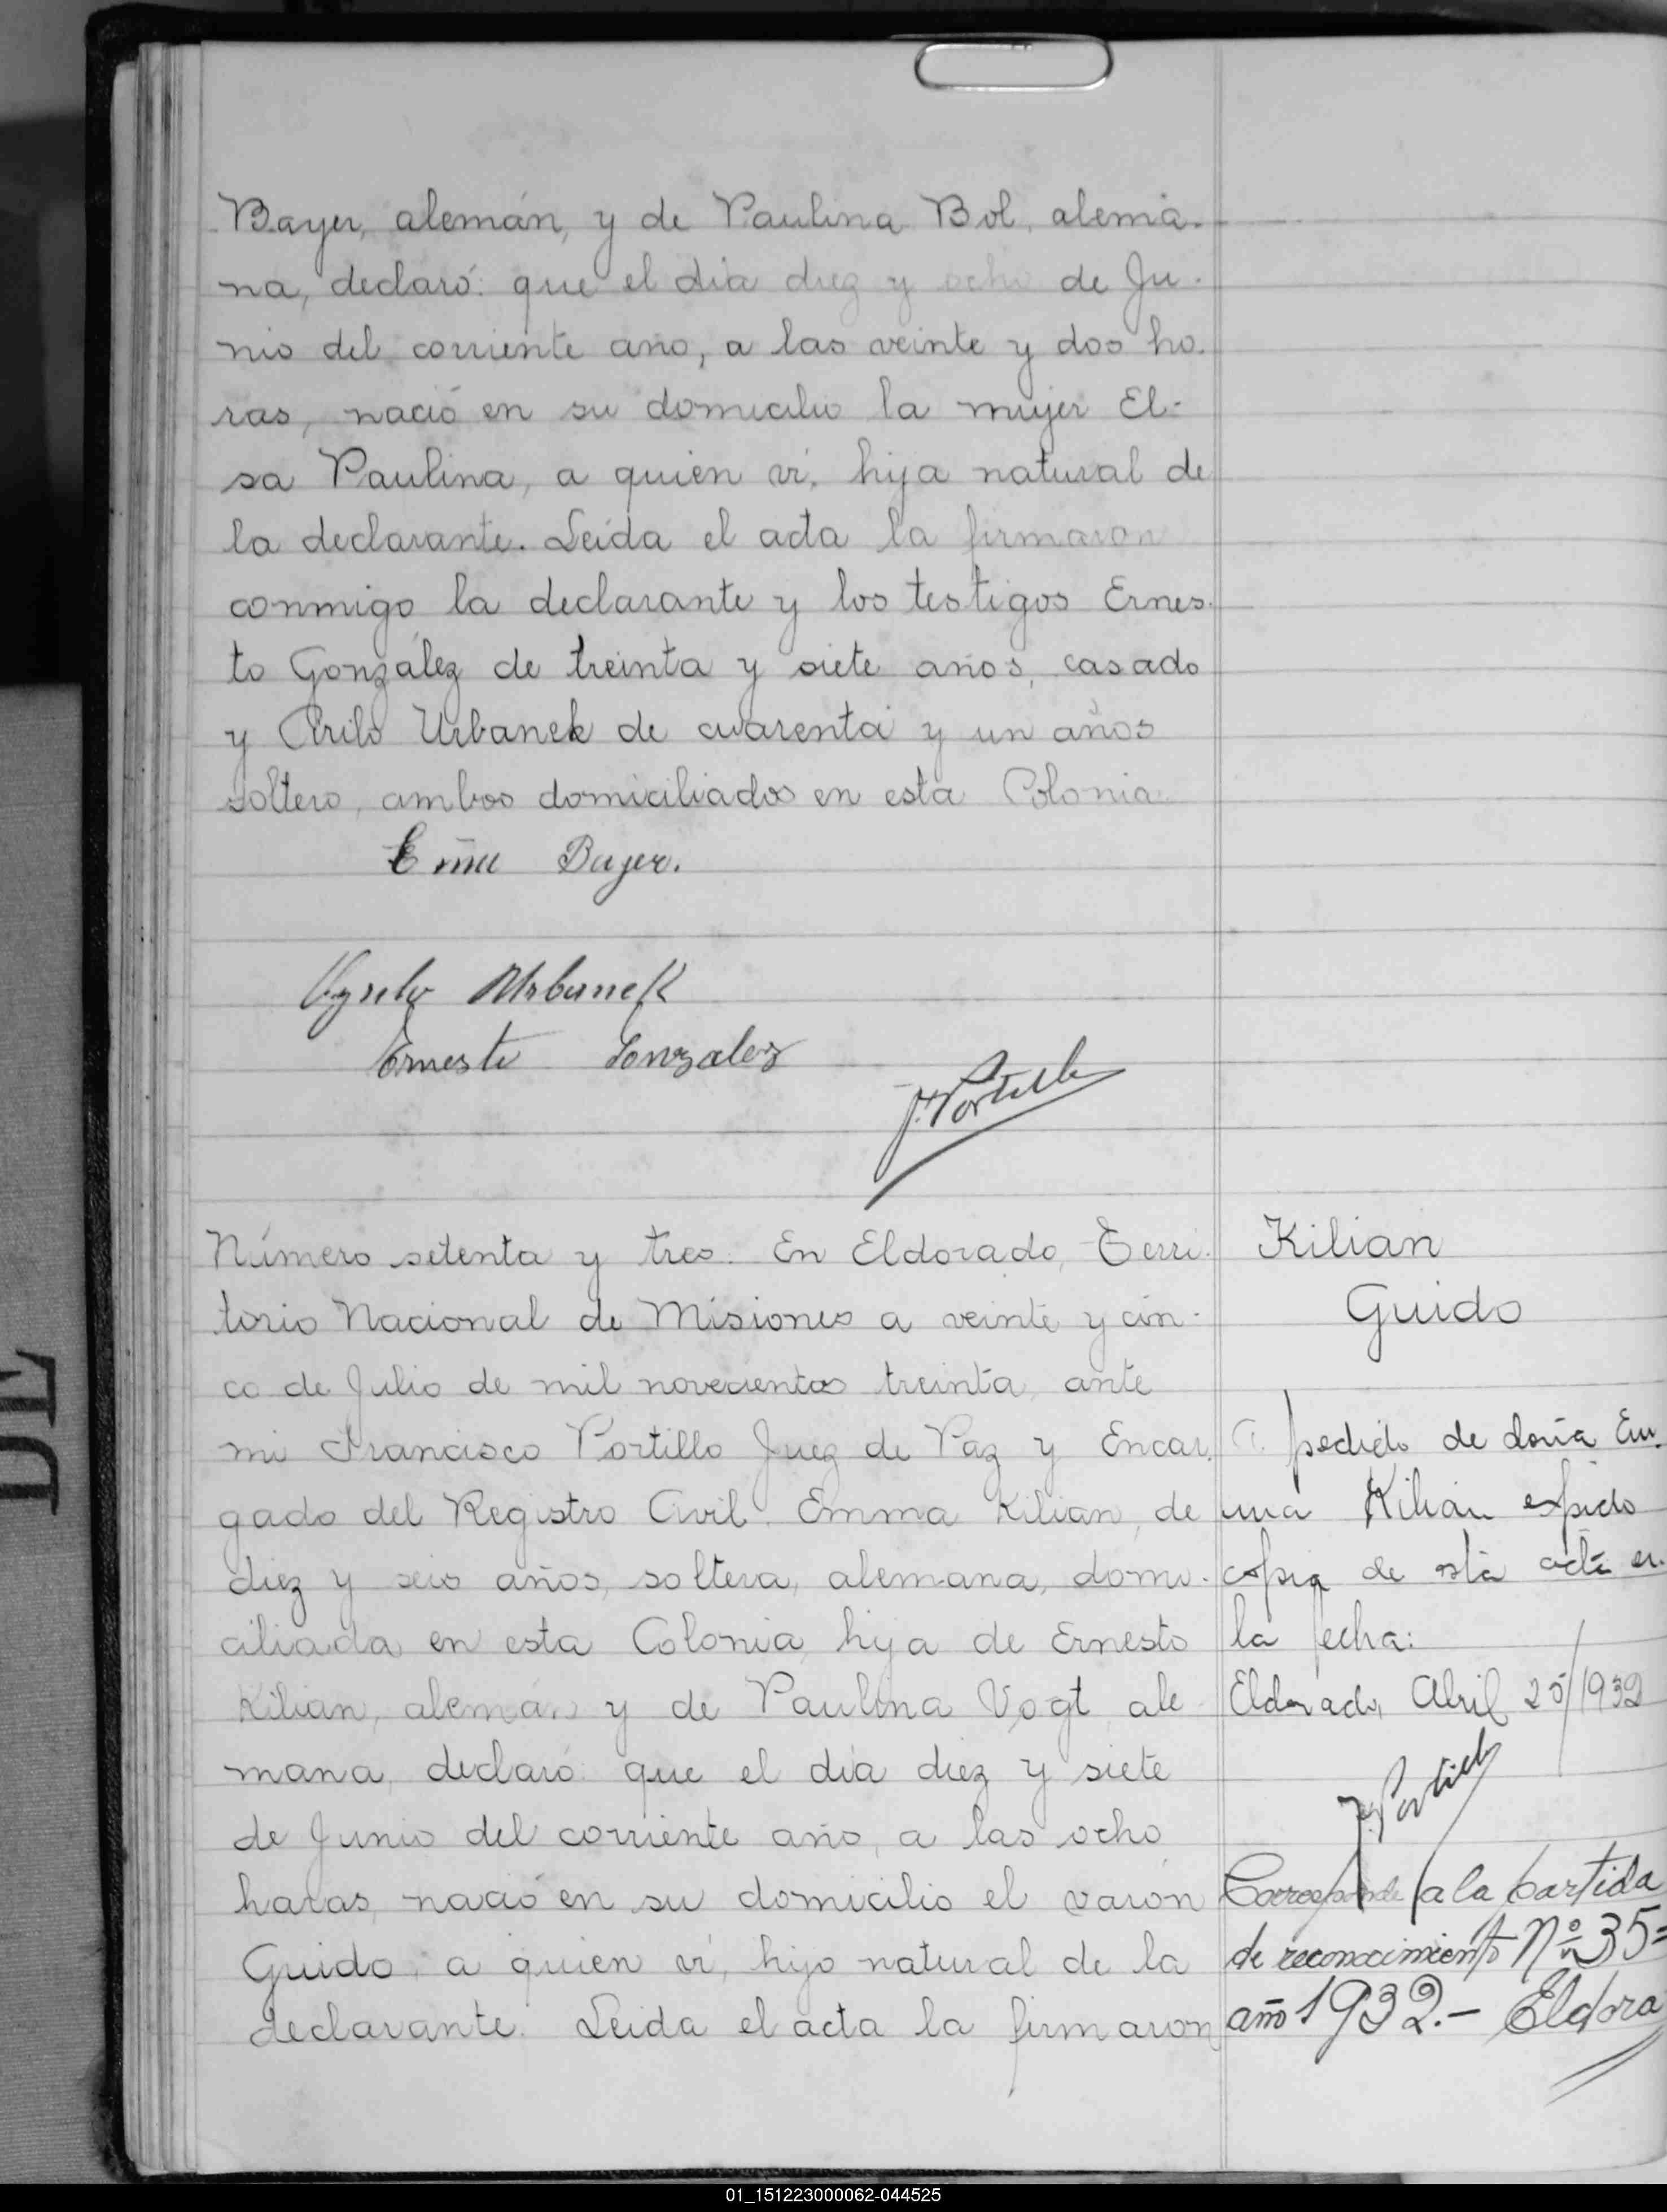 Bayer, alemán, y de Paulina Bol, alema-
na, declaró: que el dia diez y ocho de Ju-
nio del corriente año, a las veinte y dos ho-
ras, nació en su domicilio la mujer El-
sa Paulina, a quien ví, hija natural de
la declarante. Leida el acta la firmaron
conmigo la declarante y los testigos Ernes-
to González de treinta y siete años, casado
y Cirilo Urbanek de cuarenta y un años
soltero, ambos domiciliados en esta Colonia.
Bayer.
Urbanek
Ernesto Gonzalez
F. Portillo
Número setenta y tres. En Eldorado, Terri-
torio Nacional de Misiones a veinte y cin-
co de Julio de mil novecientos treinta, ante
mi Francisco Portillo Juez de Paz y Encar-
gado del Registro Civil. Emma Kilian, de
diez y seis años, soltera, alemana, domi-
ciliada en esta Colonia, hija de Ernesto
Kilian, alemán y de Paulina Vogt, ale
mana, declaró: que el dia diez y siete
de Junio del corriente año, a las ocho
haras, nació en su domicilio el varón
Guido, a quien ví, hijo natural de la
declarante. Leida el acta la firmaron
Kilian
Guido
A pedido de doña Em-
ma Kilian expido
copia de esta acta en
la fecha:
Eldorado, Abril 25/1932
F. Portillo
Corresponde a la partida
de reconocimiento Nº 35=
año 1932.- Eldora
DE
01_151223000062-044525